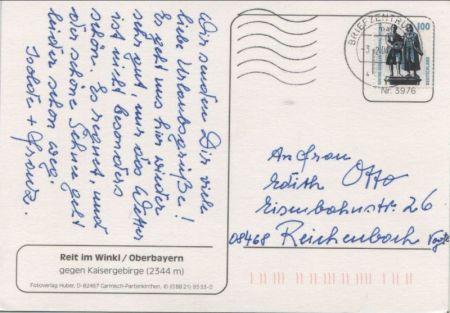 Wir senden Dir viele
liebe Urlaubsgrüße!
Es geht uns hier wieder
sehr gut, nur das Wetter
ist nicht besonders
schön. Es regnet, und
der schöne Schnee geht
leider schon weg.
+ Franz.
Reit im Winkl / Oberbayern
gegen Kaisergebirge (2344 m)
Fotoverlag Huber, D-82467 Garmisch-Partenkirchen,
BRIEFZENTRUM
100
DEUTSCHLAND
Nr. 3976
An Frau
Edith Otto
Eisenbahnstr. 26
08468 Reichenbach